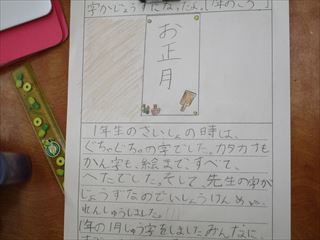 字がじょうずになったよ。「1年のころ」
お正月
1年生のさいしょの時は、
ぐちゃぐちゃの字でした。カタカナも
かん字も、絵まで、すべて、
へたでした。そして、先生の字が
じょうずなのでいっしょうけんめい
れんしゅうしました。!!!
1年の1月しゅう字をしました。みんなに、